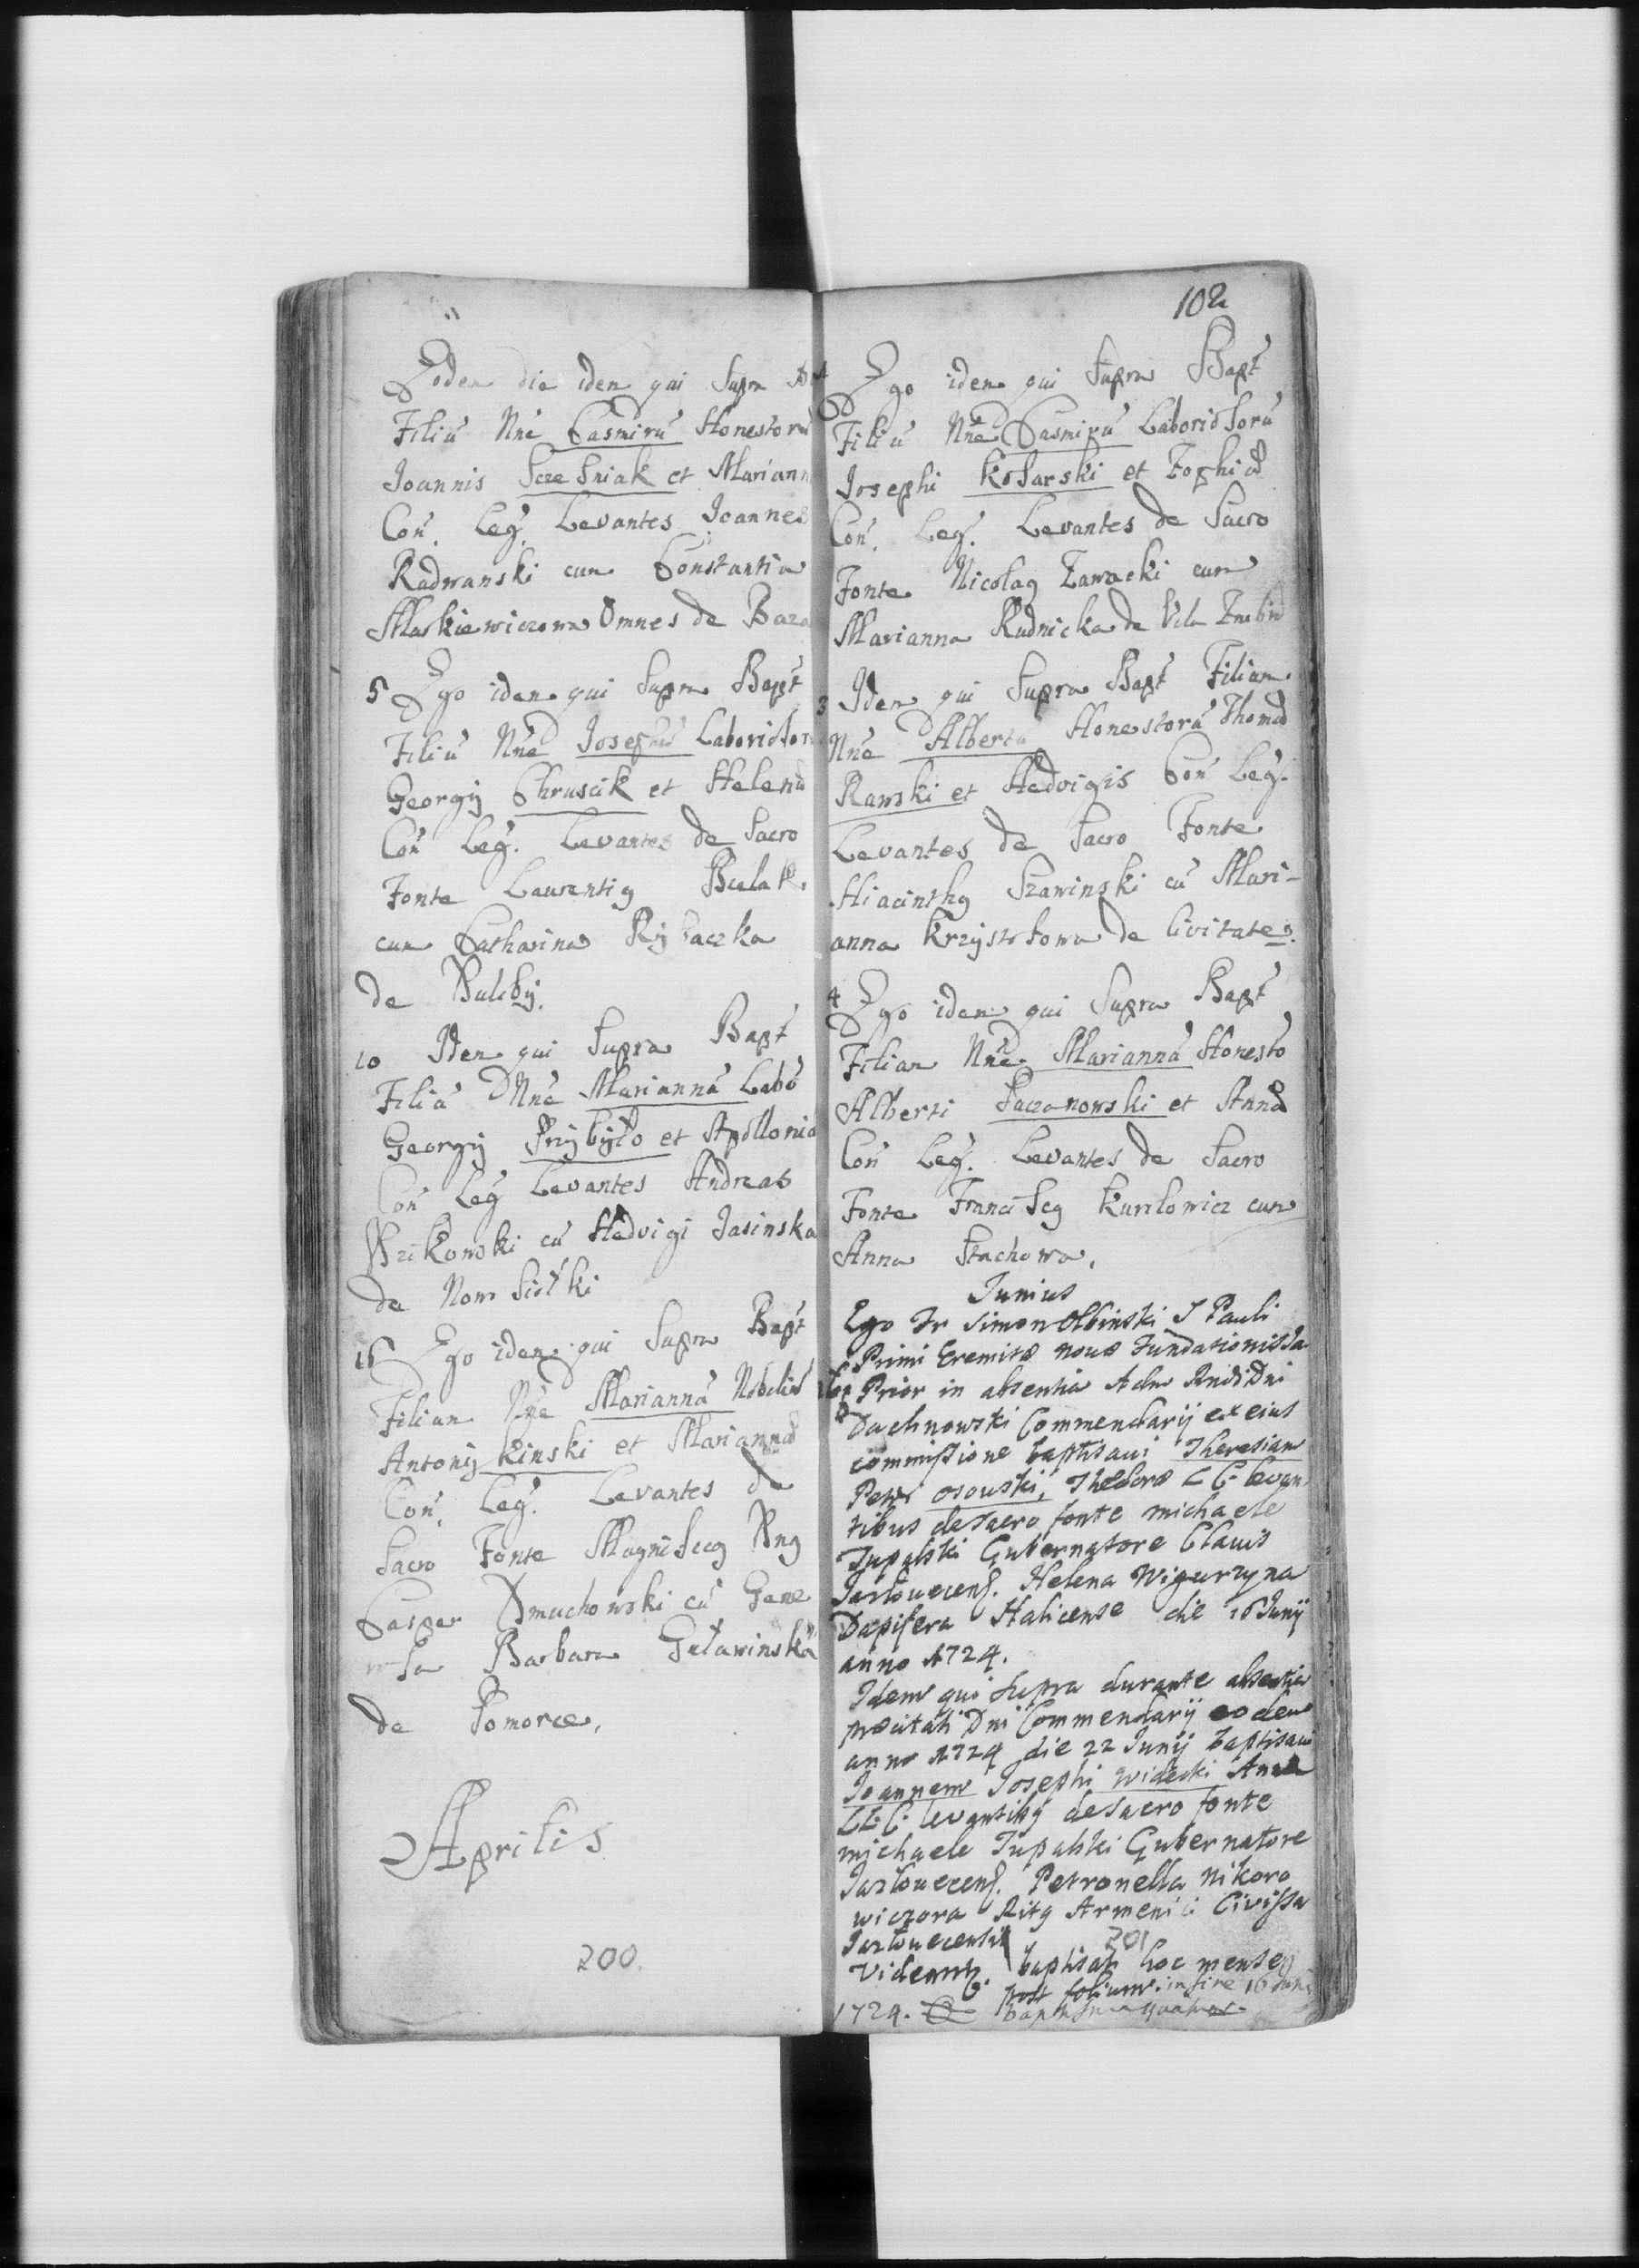 Eoden die iden qui supra
Filiú Nné Casmirú Honestorú
Joannis Szczesniak et Mariann
Con. Leg. Levantes Joannes
Radwanski cum Constantia
Maskiewiczowa Omnes de Baza
5 Ego iden qui Supra Bapt
Filiú Nné Josephú Laborios
Georgij Chruscik et Helenæ
Con Leg. Levantes de Sacro
Fonte Laurentig Bulat
cum Catharina Rybaczka
de
10 Iden qui Supra Bapt
Filiá Nné Marianná Labo
Georgij Przybyło et Apollonia
Con Leg Levantes Andreas
cú Hedvigi Jasinska
de Now
15 Ego iden qui Supra Bapt
Filian Nne Marianná Nobiliú
Antonij Kinski et Marianna
Con. Leg. Levantes de
Sacro Fonte Magnificg Dng
Casper Dmuchowski cú Gene
rosa Barbara Gutawinská
de Pomorce,
Aprilis
200.
102
Ego iden qui Supra Bapt
Filiú Nné Casmirú Laboriosorú
Josephi Kosarski et Zophiæ
Con. Leg. Levantes de Sacro
Fonte Nicolag Zawacki cum
Marianna Rudnicka de
3 Iden qui Supra Bapt Filian
Nné Albertá Honestorú Thomæ
Rawski et Hedvigis Con Leg.
Levantes de Sacro Fonte
Hiacinthg Szawinski cú Mari-
anna Krzysztofowa de Civitate.
4 Ego iden qui Supra Bapt
Filian Nné Marianná Honesto
Alberti Paczanowski et Annæ
Con Leg. Levantes de Sacro
Fonte Franciscg Kurdowicz cum
Anna Stachowa,
Junius
Ego Fr Simon Olbinski S Pauli
Primi Eremitæ novæ Fundationis Ja
Prior in absentia Adm Rndi Dni
Dachnowski Commendarij ex eius
commissione baptisavi Theresiam
Petri Osowski, Theodoræ C C levan
tibus de sacro fonte michaele
Tupalski Gubernatore Clavis
Jazłowecens. Helena Wigurzyna
Dapifera Halicense die 16 Junij
anno 1724.
Idem qui supra durante absentia
præcitati Dni Commendarij eodem
anno 1724 die 22 Junij baptisavi
Joannem Josephi Widecki Annæ
LL: C: levantibg de sacro fonte
michaele Tupalski Gubernatore
Jazłowecens. Petronella Nikoro
wiczora Ritg Armenici Civissa
Jazłowecensis
201
Videantr. baptisati hoc mense
post folium. in fine 16 Juni
1724.